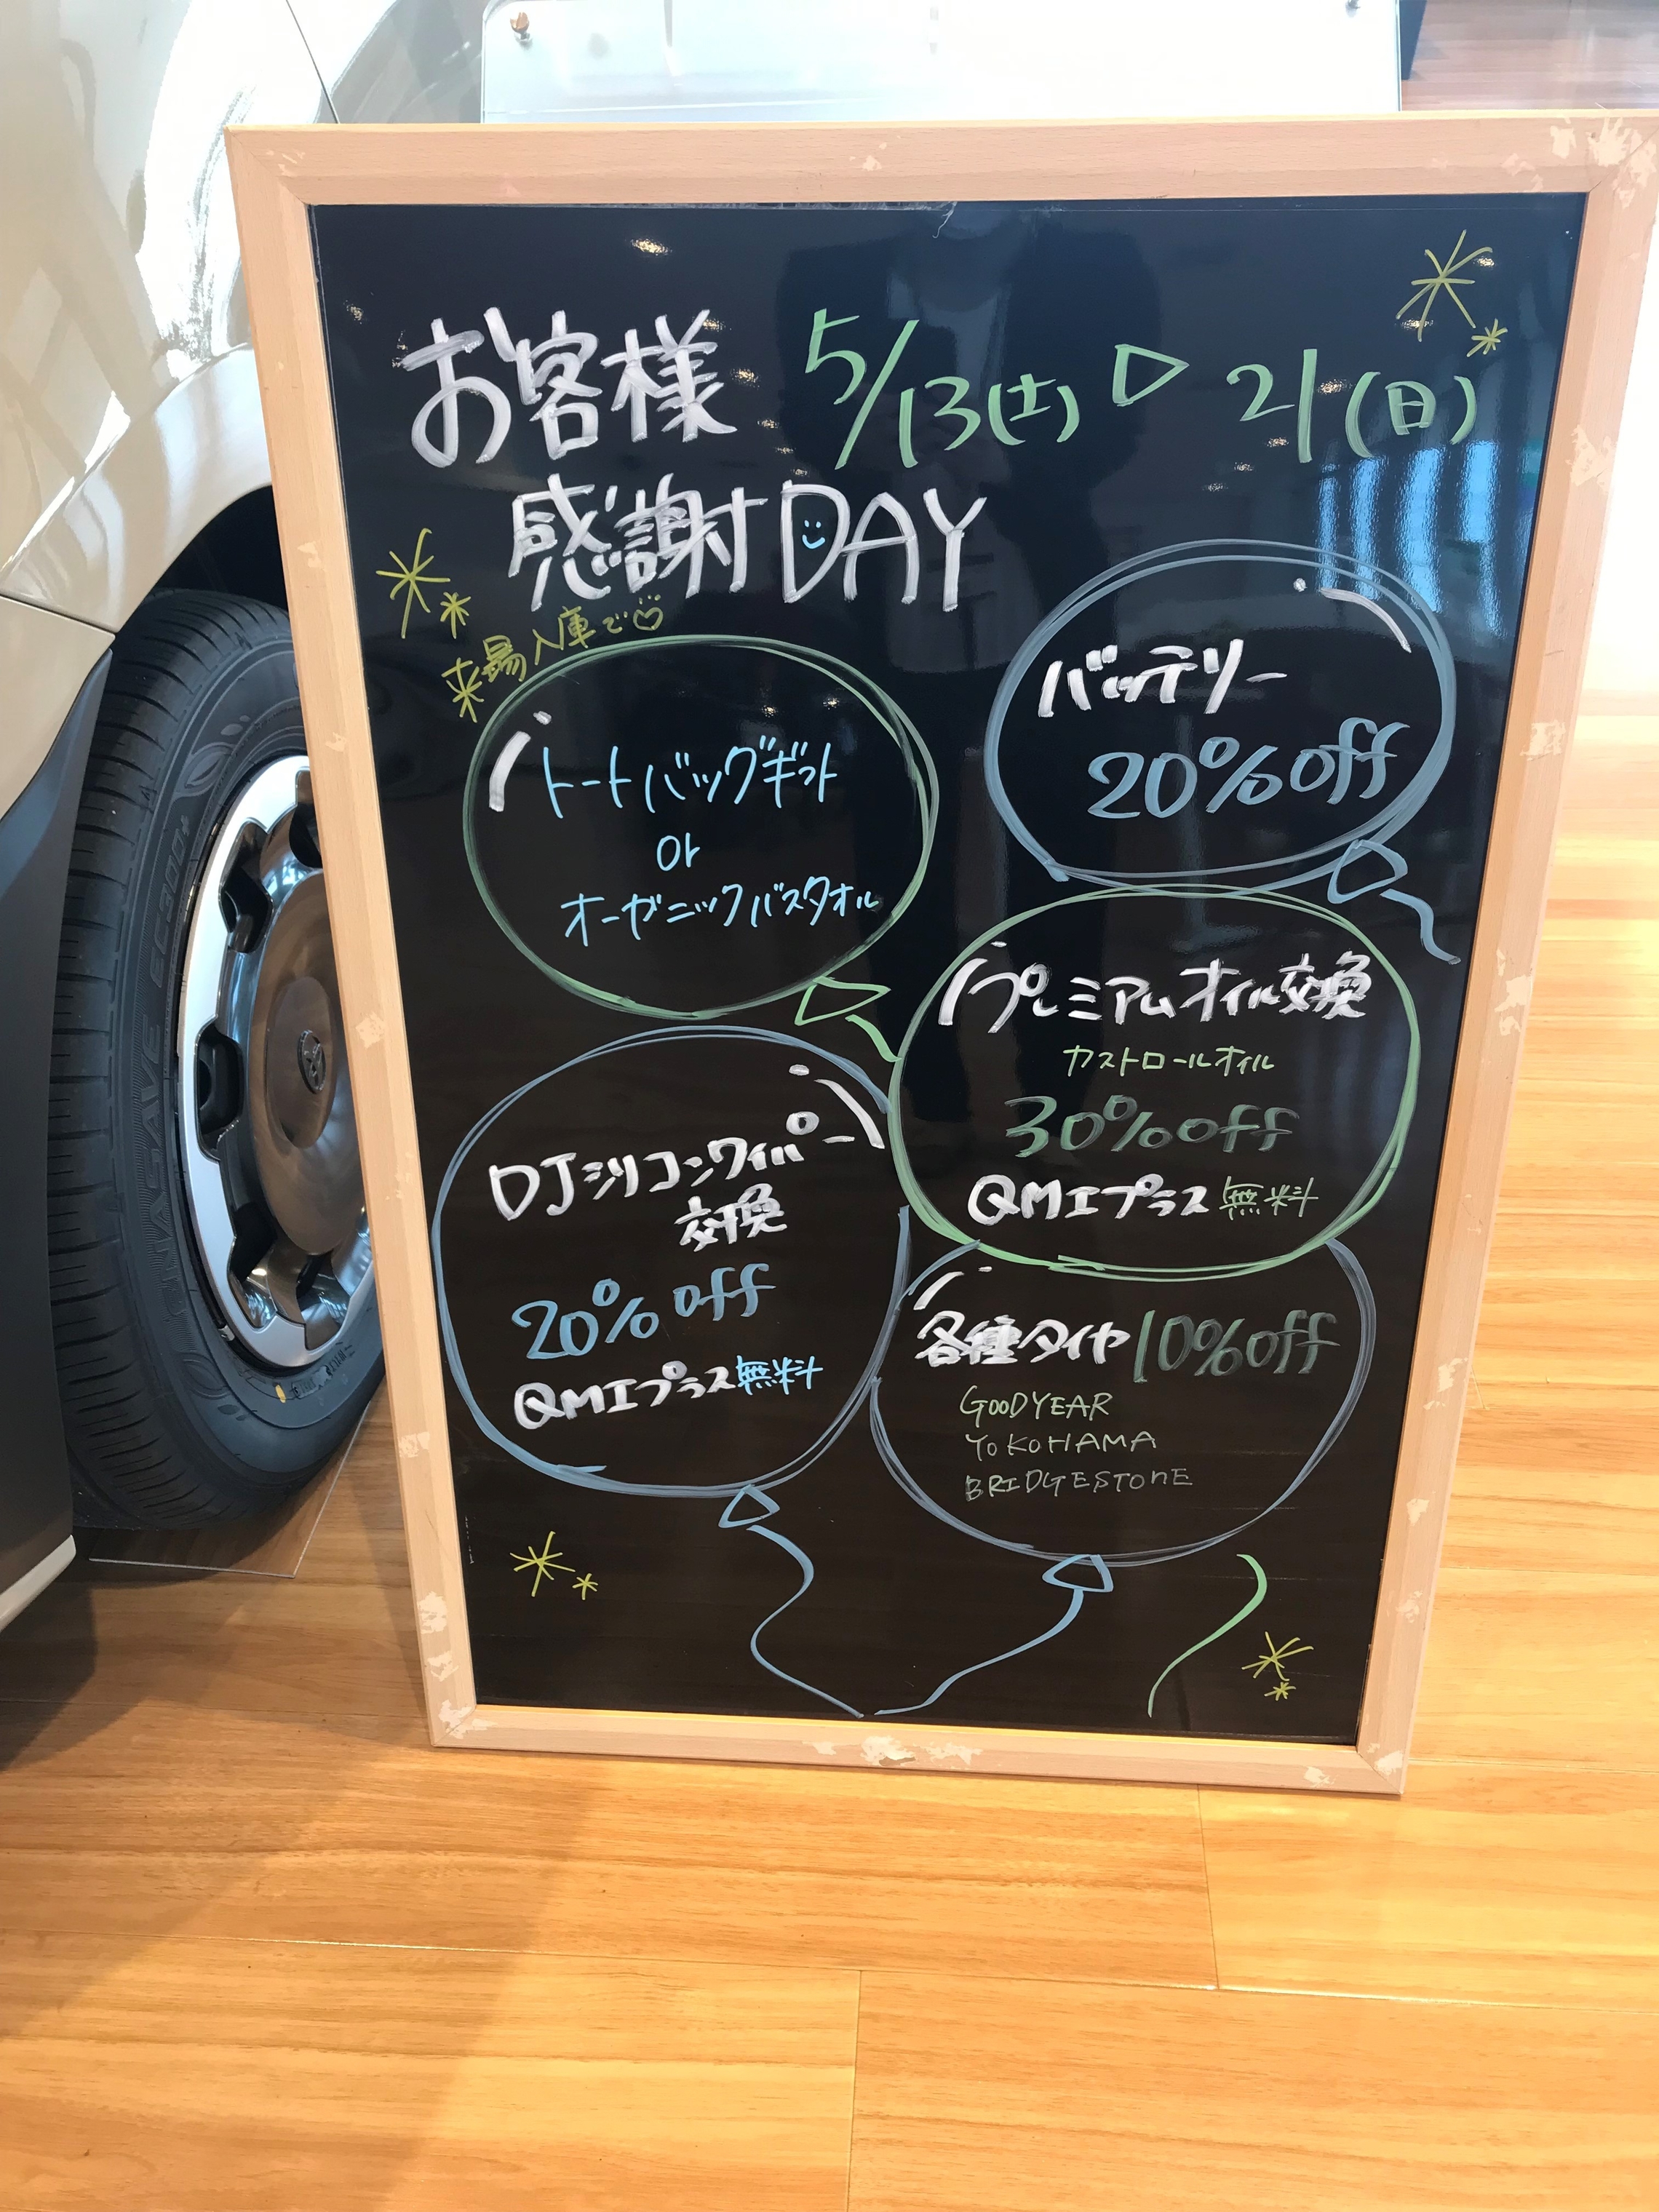 お客様 5/13(土)▷21(日)
感謝DAY
来場入庫で
トートバッグギフト
or
オーガニックバスタオル
バッテリー
20%off
プレミアムオイル交換
カストロールオイル
30%off
QMIプラス無料
DJシリコンワイパー
交換
20%off
QMIプラス無料
各種タイヤ10%off
GOODYEAR
YOKOHAMA
BRIDGESTONE
ENASAVE EC300+